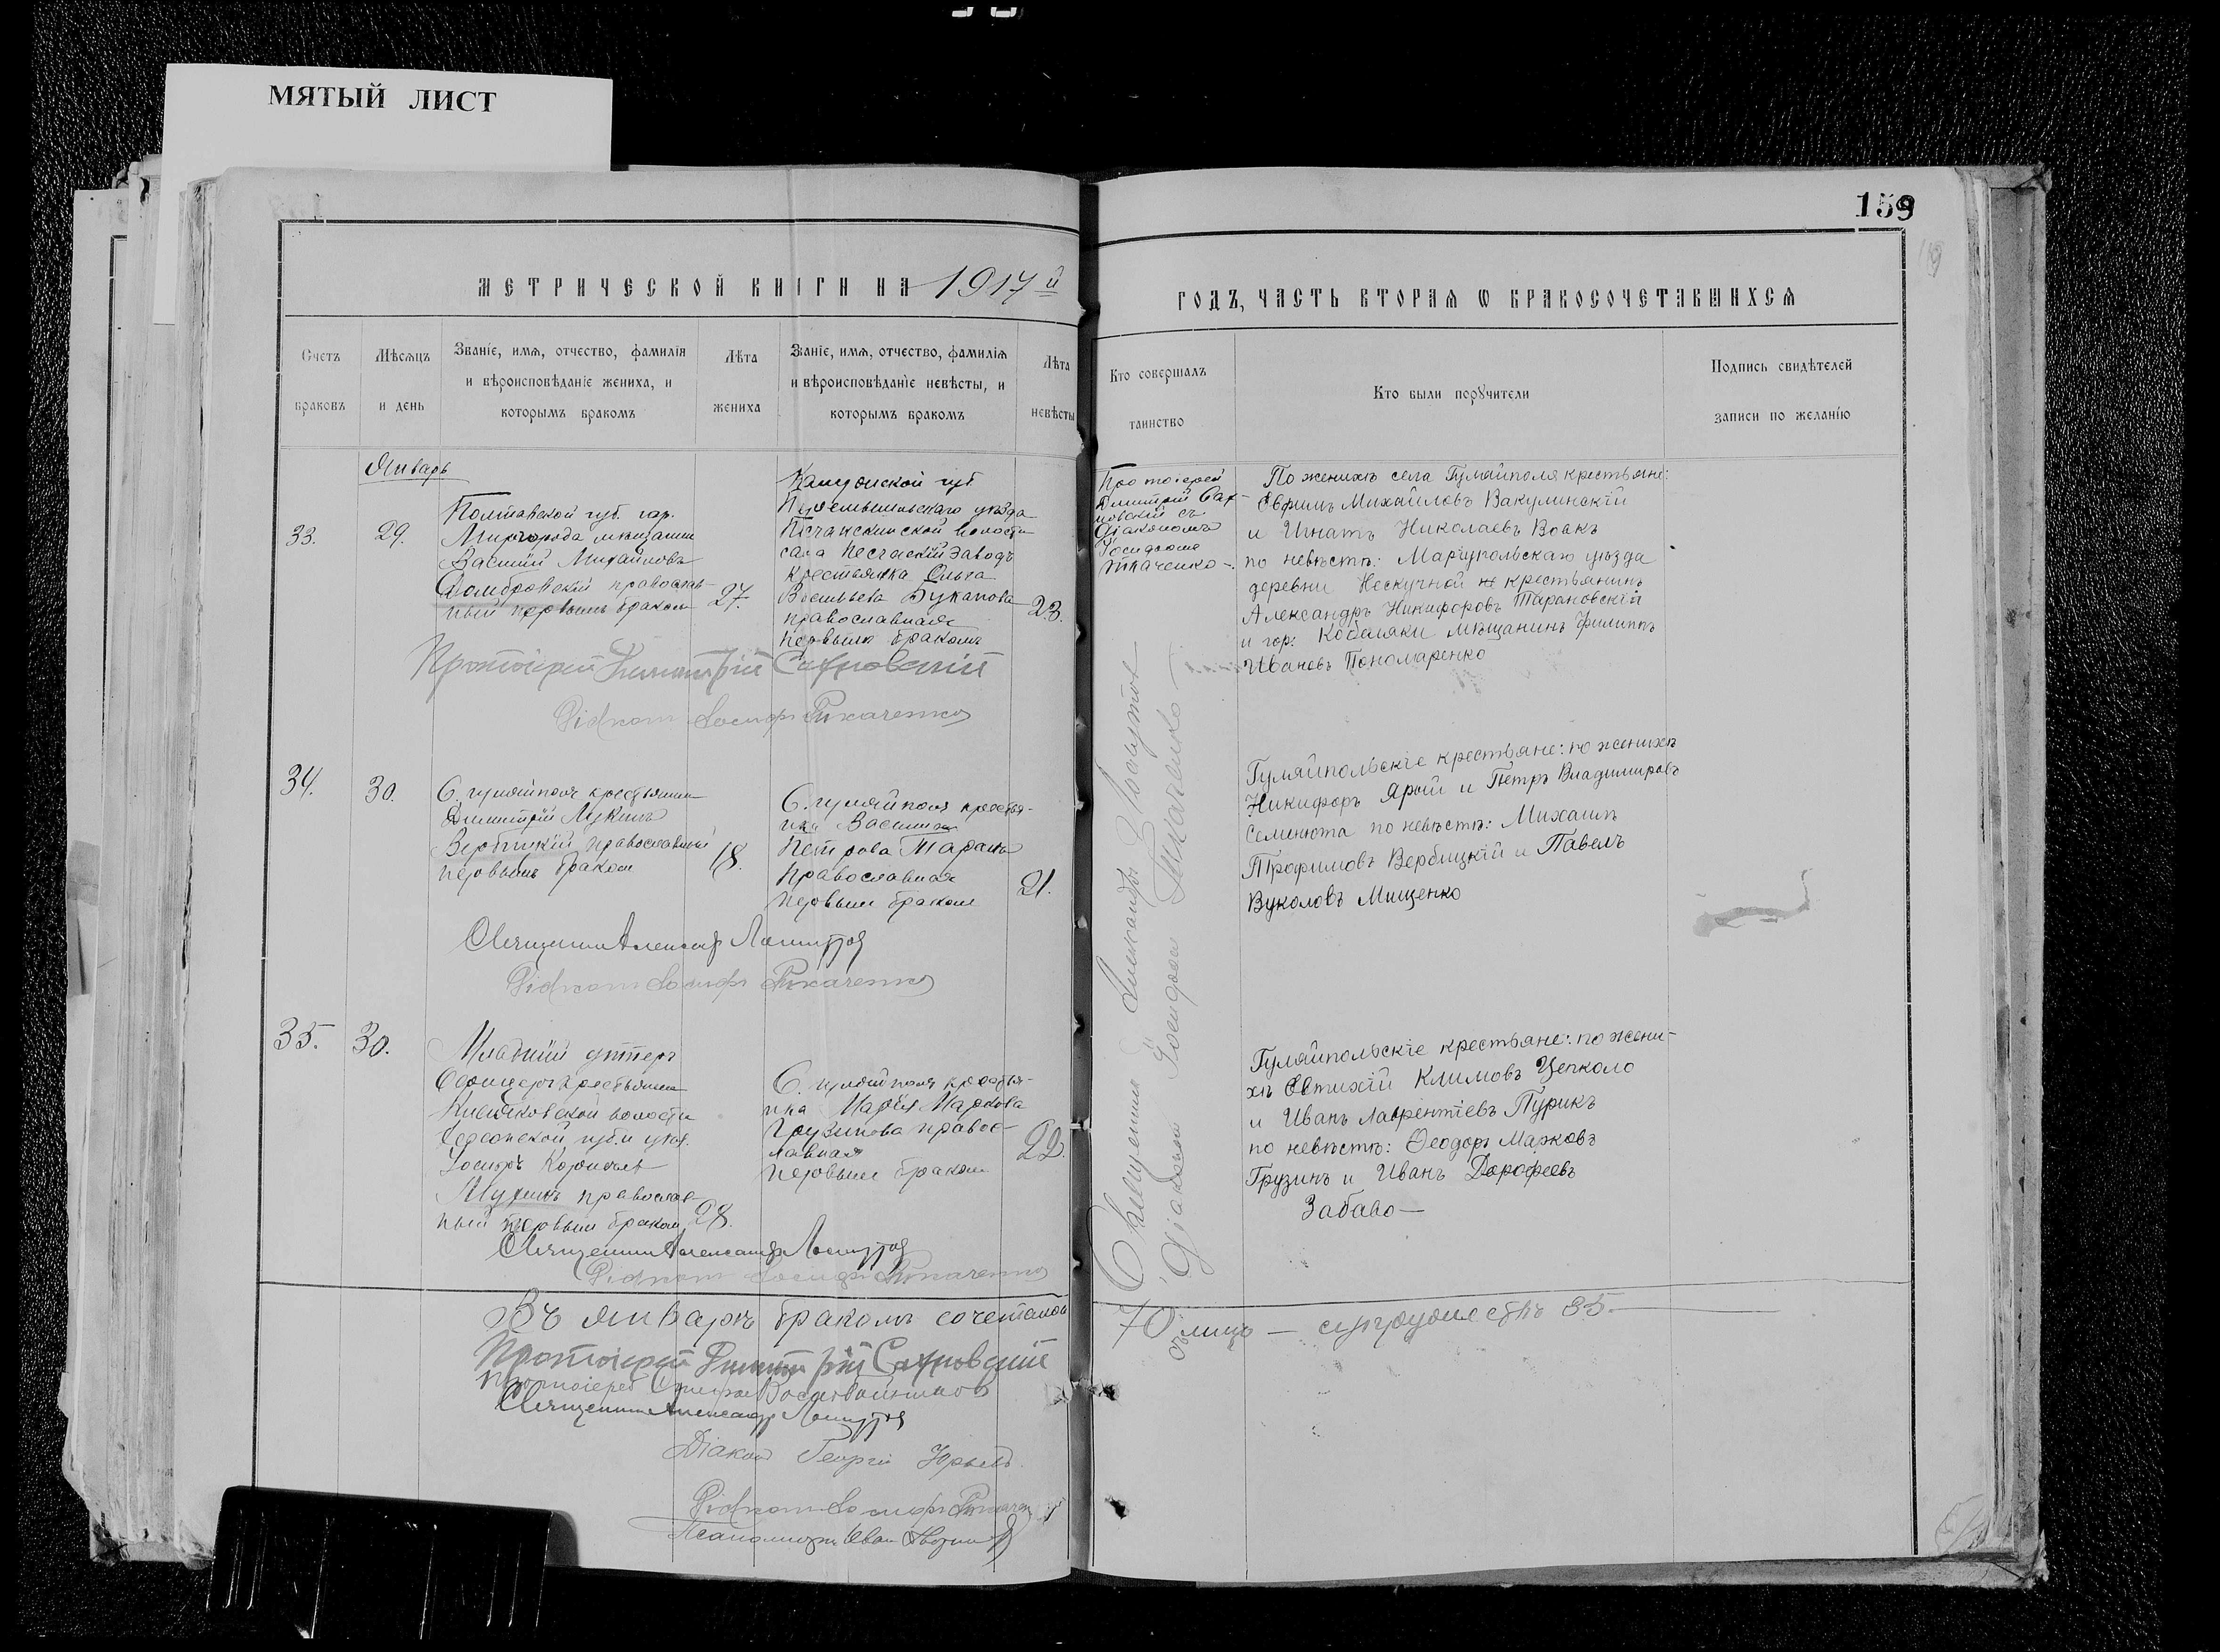 МЯТЫЙ ЛИСТ
159
МЕТРИЧЕСКОЙ КНИГИ НА 1917 й
ГОДЪ, ЧАСТЬ ВТОРАѦ Ѡ БРАКОСОЧЕТАВШИХСѦ
Счетъ браковъ
Мѣсѧцъ и день
Званіе, имѧ, отчество, фамиліѧ
и вѣроисповѣданіе жениха, и
которымъ бракомъ
Лѣта жениха
Званіе, имѧ, отчество, фамиліѧ
и вѣроисповѣданіе невѣсты, и
которымъ бракомъ
Лѣта невѣсты
Кто совершалъ таинство
Кто были порꙋчители
Подпись свидѣтелей
записи по желанію
Январь
33.
29.
Полтавской губ. гор.
Миргорода мѣщанинъ
Василій Михайловъ
Домбровскій православ-
ный первымъ бракомъ
27.
Калужской губ
Перемышльскаго уѣзда
волости
села Песоченскій Заводъ
крестьянка Ольга
Васильева
православная
первымъ бракомъ
23.
Протоіерей
Дмитрій Сах-
новскій съ
діакономъ
Іосифомъ
Ткаченко
По женихѣ села Гуляйполя крестьяне:
Евфимъ Михайловъ Вакулинскій
и Игнатъ Николаевъ Вовкъ
по невѣстѣ: Маріупольскаго уѣзда
деревни Нескучной крестьянинъ
Александръ Никифоровъ Тарановскій
и гор: Кобеляки мѣщанинъ Филиппъ
Ивановъ Пономаренко
Протоіерей Димитрій Сахновскій
Діаконъ Іосифъ Ткаченко
34.
30.
С. Гуляйполя крестьянинъ
Димитрій Лукинъ
Вербицкій православный
первымъ бракомъ
18.
С. Гуляйполя крестья-
нка
Петрова Таранъ
Православная
первымъ бракомъ
21.
Гуляйпольскіе крестьяне: по женихѣ
Никифоръ Ярый и Петръ Владимировъ
Семенюта по невѣстѣ: Михаилъ
Трофимовъ Вербицкій и Павелъ
Вуколовъ Мищенко
Священникъ Александръ
Діаконъ Іосифъ Ткаченко
35.
30.
Младшій унтеръ
офицеръ крестьянинъ
волости
Херсонской губ. и уѣз.
Іосифъ
православ-
ный первымъ бракомъ
28.
С. Гуляйполя крестья-
нка Марія Маркова
Грузинова правос-
лавная
первымъ бракомъ
22.
Священникъ Александръ
Діаконъ Іосифомъ Ткаченко
Гуляйпольскіе крестьяне: по жени-
хѣ Евтихій Климовъ Цепколо
и Иванъ Лаврентіевъ Турикъ
по невѣстѣ: Ѳеодоръ Марковъ
Грузинъ и Иванъ Дорофеевъ
Забаво
Священникъ Александръ
Діаконъ Іосифъ Ткаченко
Въ январѣ бракомъ сочеталось
70 лицъ — супружествъ 35.
Протоіерей Димитрій Сахновскій
Протоіерей
Священникъ Александръ
Діаконъ Георгій
Діаконъ Іосифъ Ткаченко
Псаломщикъ Иван